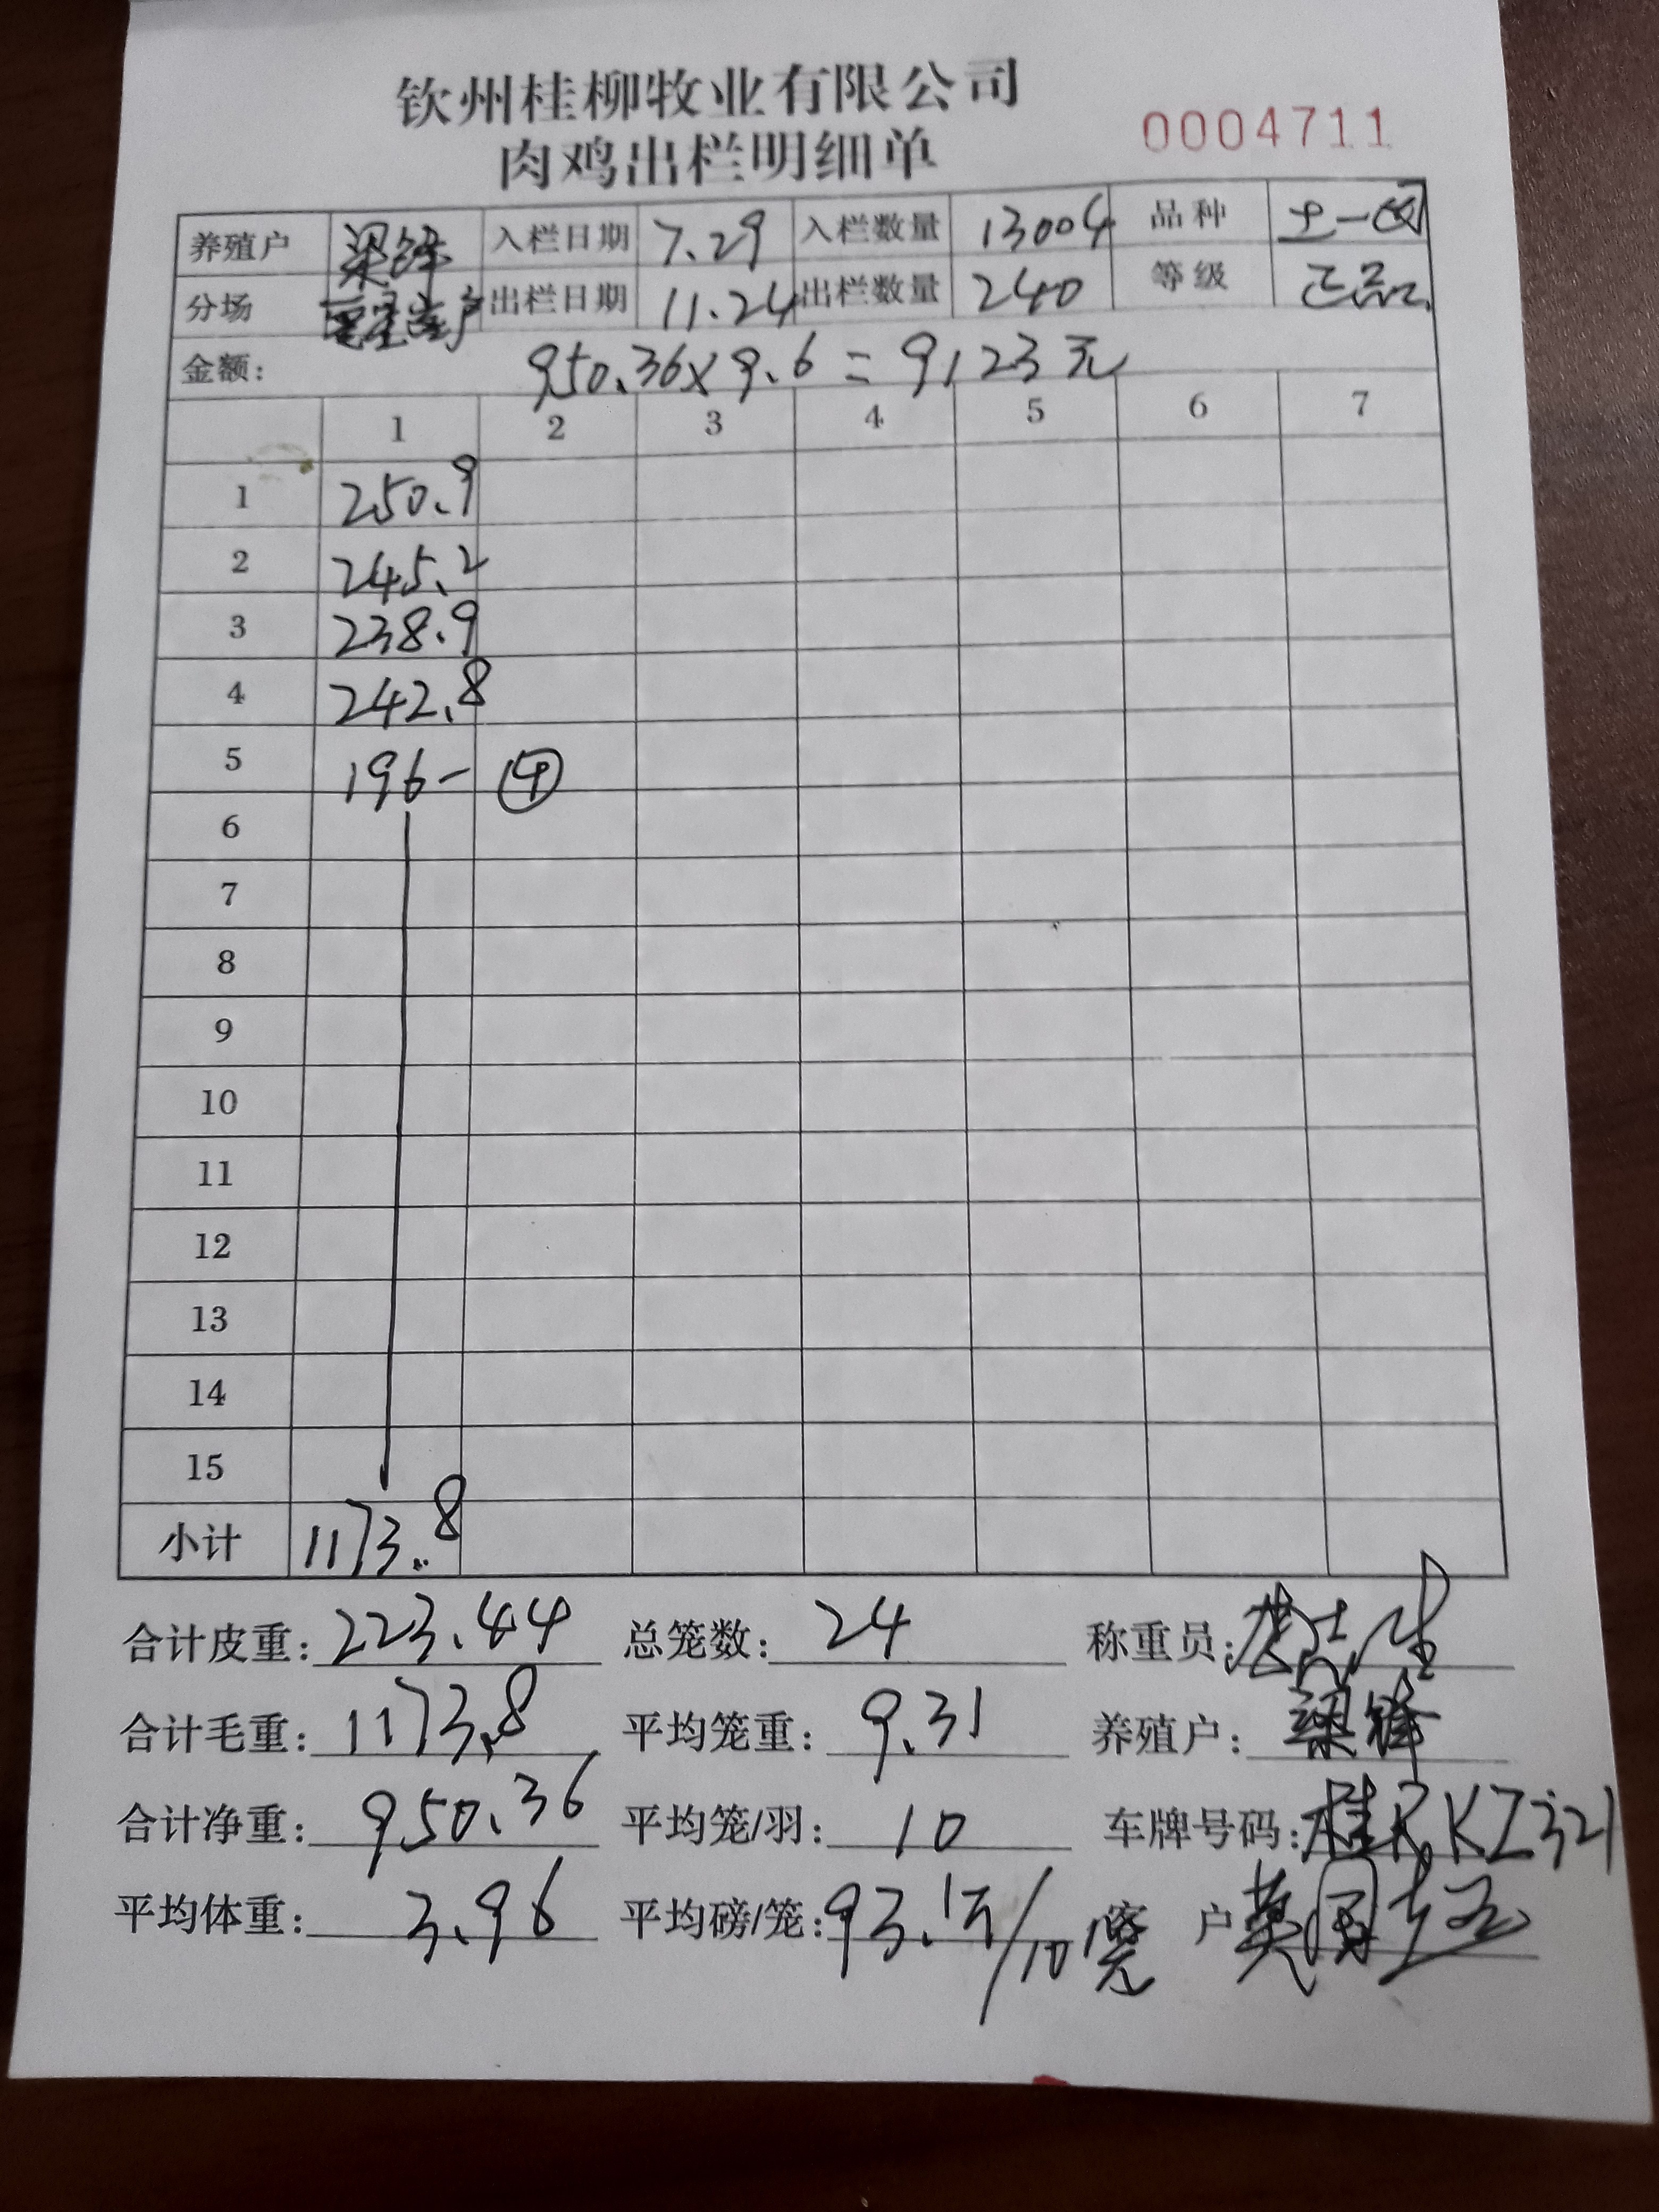 钦州桂柳牧业有限公司
肉鸡出栏明细单 0004711
养殖户 梁锋 入栏日期 7.29 入栏数量 13004 品种 土一
分场 出栏日期 11.24 出栏数量 240 等级 正品
金额: 950.36×9.6=9123元
1 2 3 4 5 6 7
1 250.9
2 245.2
3 238.9
4 242.8
5 196- ④
6
7
8
9
10
11
12
13
14
15
小计 1173.8
合计皮重: 223.44 总笼数: 24 称重员:
合计毛重: 1173.8 平均笼重: 9.31 养殖户: 梁锋
合计净重: 950.36 平均笼/羽: 10 车牌号码: 桂RKZ321
平均体重: 3.96 平均磅/笼: 93.1斤/10 客户